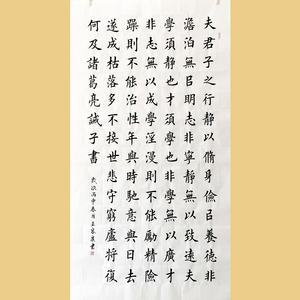 夫君子之行靜以脩身儉㠯養德非
澹泊無㠯明志非寧靜無以致遠夫
學須靜也才須學也非學無以廣才
非志無以成學淫漫則不能勵精險
躁則不能治性年與時馳意與日去
遂成枯落多不接世悲守窮廬將復
何及諸葛亮誡子書
歲次丙申春月王家書